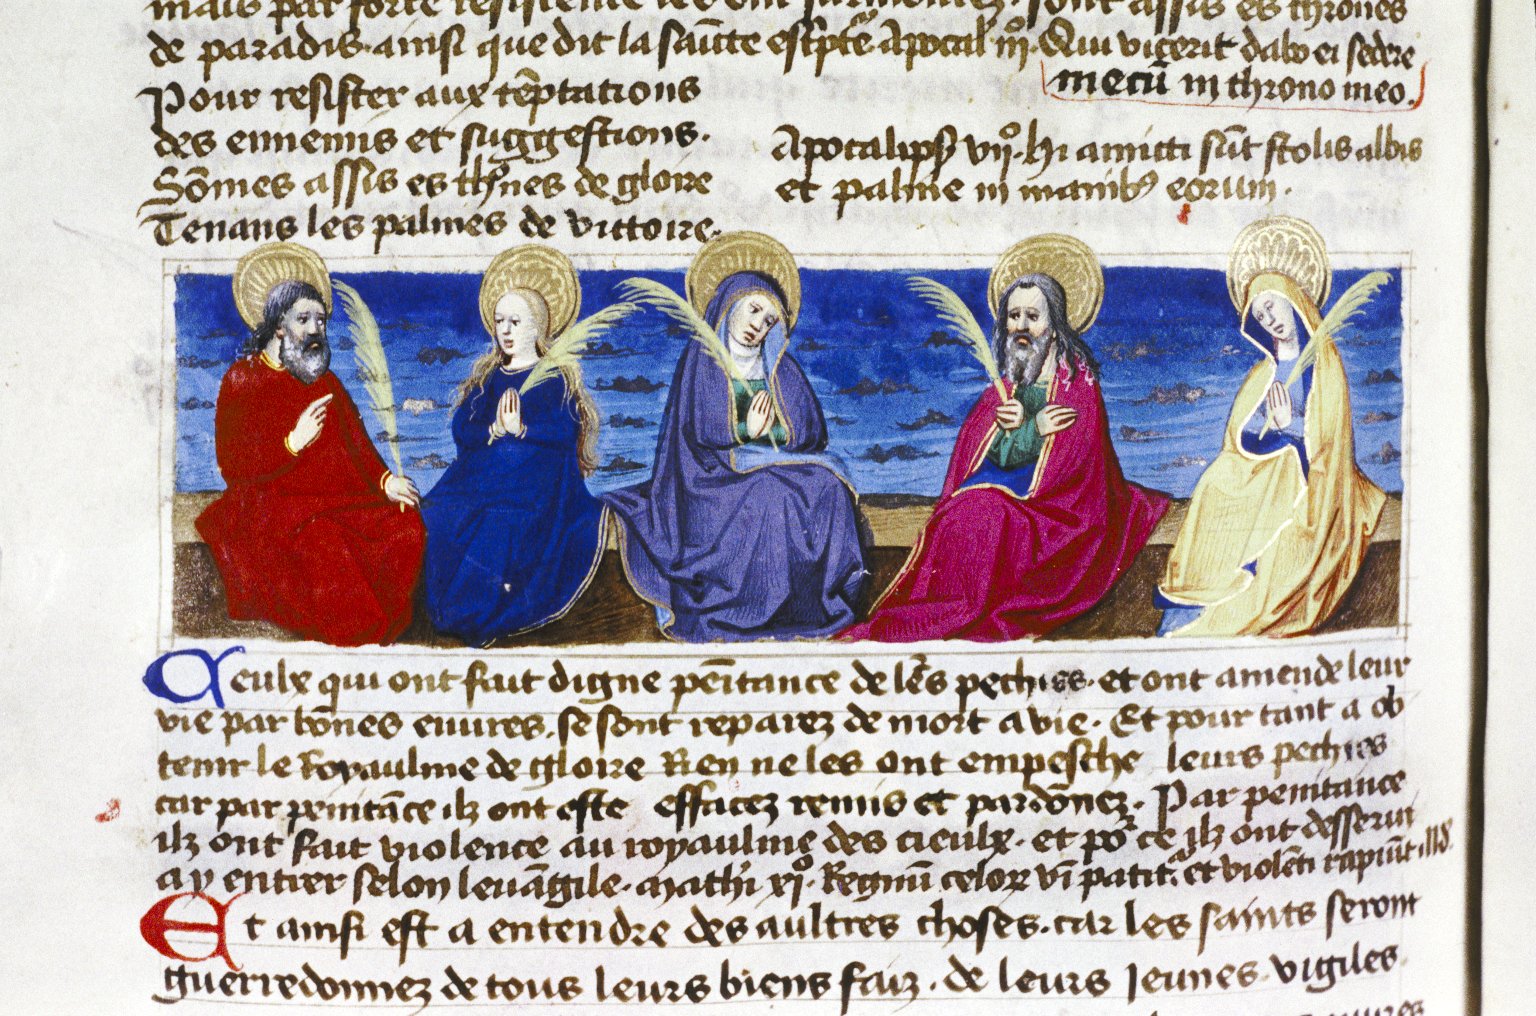 mais par force resistence les ont surmontez. sont assis es thrones
de paradis. ainsi que dit la saīcte escⁱptᵉ. Apocal iijº. Qui vicerit dabo ei sedere
mecū in throno meo.
Pour resister aux tēptations
des ennemis et suggestions.
Sōmes assis es thrones de gloire
Tenans les palmes de victoire.
Apocalipsˢ vijº. hi amicti sūt stolis albis
et palme in manibꝰ eorum.
Ceulx qui ont fait digne penītance de lēs pechies. et ont amende leur
vie par bōnes euures. se sont reparez de mort a vie. Et pour tant a ob
tenir le Royaulme de gloire Rien ne les ont empesche leurs pechies
car par penitāce ilz ont este effacez remis et pardōnez. Par penitance
ilz ont fait violence au royaulme des cieulx. et poʳ ce ilz ont desserui
a y entrer selon leuāgile. Mathi xjº. Regnū celoꝝ vī patitᵃ. et violēti rapiūt illᵈ.
Et ainsi est a entendre des aultres choses. car les saints seront
guerredonnez de tous leurs biens faiz. de leurs Jeunes. vigiles.